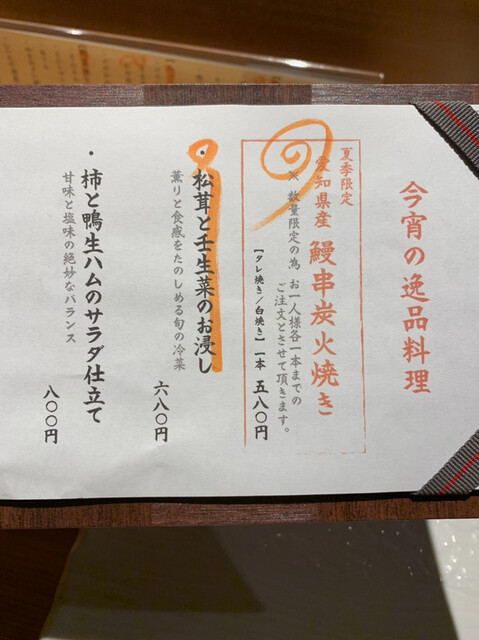 今宵の逸品料理
夏季限定
愛知県産 鰻串炭火焼き
※ 数量限定の為 お一人様各一本までの
ご注文とさせて頂きます。
【タレ焼き/白焼き】 一本 五八〇円
・松茸と壬生菜のお浸し
薫りと食感をたのしめる旬の冷菜
六八〇円
・柿と鴨生ハムのサラダ仕立て
甘味と塩味の絶妙なバランス
八〇〇円